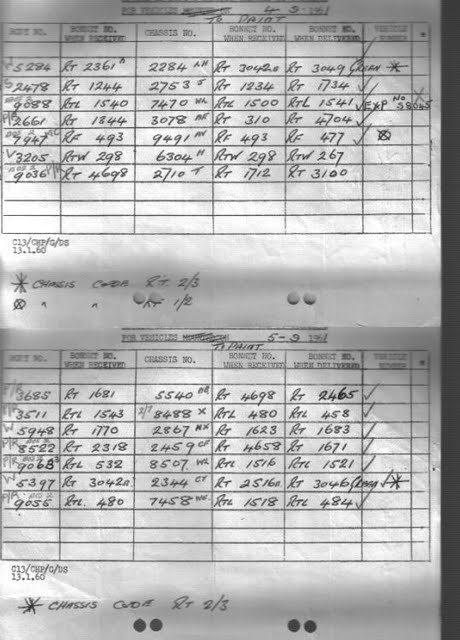 FOR VEHICLES 4-9-1961
TO PAINT
BODY NO. BONNET NO. WHEN RECEIVED CHASSIS NO. BONNET NO. WHEN RECEIVED BONNET NO. WHEN DELIVERED VEHICLE NUMBER *
5284 RT 2361 2284 RT 3042 RT 3049 GREEN *
2478 RT 1244 2753 RT 1234 RT 1734 ✓
9088 RTL 1540 7470 RTL 1500 RTL 1541 ✓ EXP NO S8045
2661 RT 1344 3078 RT 310 RT 4704 ✓
7947 RF 493 9491 RF 493 RF 477 ✓ ⊗
V 3205 RTW 298 6304 H RTW 298 RTW 267
9036 RT 4698 2710 T RT 1712 RT 3100
C13/CHP/G/DS
13.1.60
* CHASSIS CODE RT 2/3
⊗ " " RT 1/2
FOR VEHICLES 5-9-1961
TO PAINT
BODY NO. BONNET NO. WHEN RECEIVED CHASSIS NO. BONNET NO. WHEN RECEIVED BONNET NO. WHEN DELIVERED VEHICLE NUMBER *
3685 RT 1681 5540 RT 4698 RT 2465 ✓
3511 RTL 1543 8488 X RTL 480 RTL 458 ✓
W 5948 RT 1770 2867 NX RT 1623 RT 1683 ✓
8522 RT 2318 2459 RT 4658 RT 1671 ✓
9068 RTL 532 8507 RTL 1516 RTL 1521 ✓
W 5397 RT 3042 2344 CY RT 2516 RT 3046 GREEN ✓ *
9055 RTL 480 7458 RTL 1518 RTL 484 ✓
C13/CHP/G/DS
13.1.60
* CHASSIS CODE RT 2/3